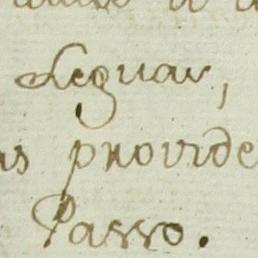 Seguar,
as provide
Passo.